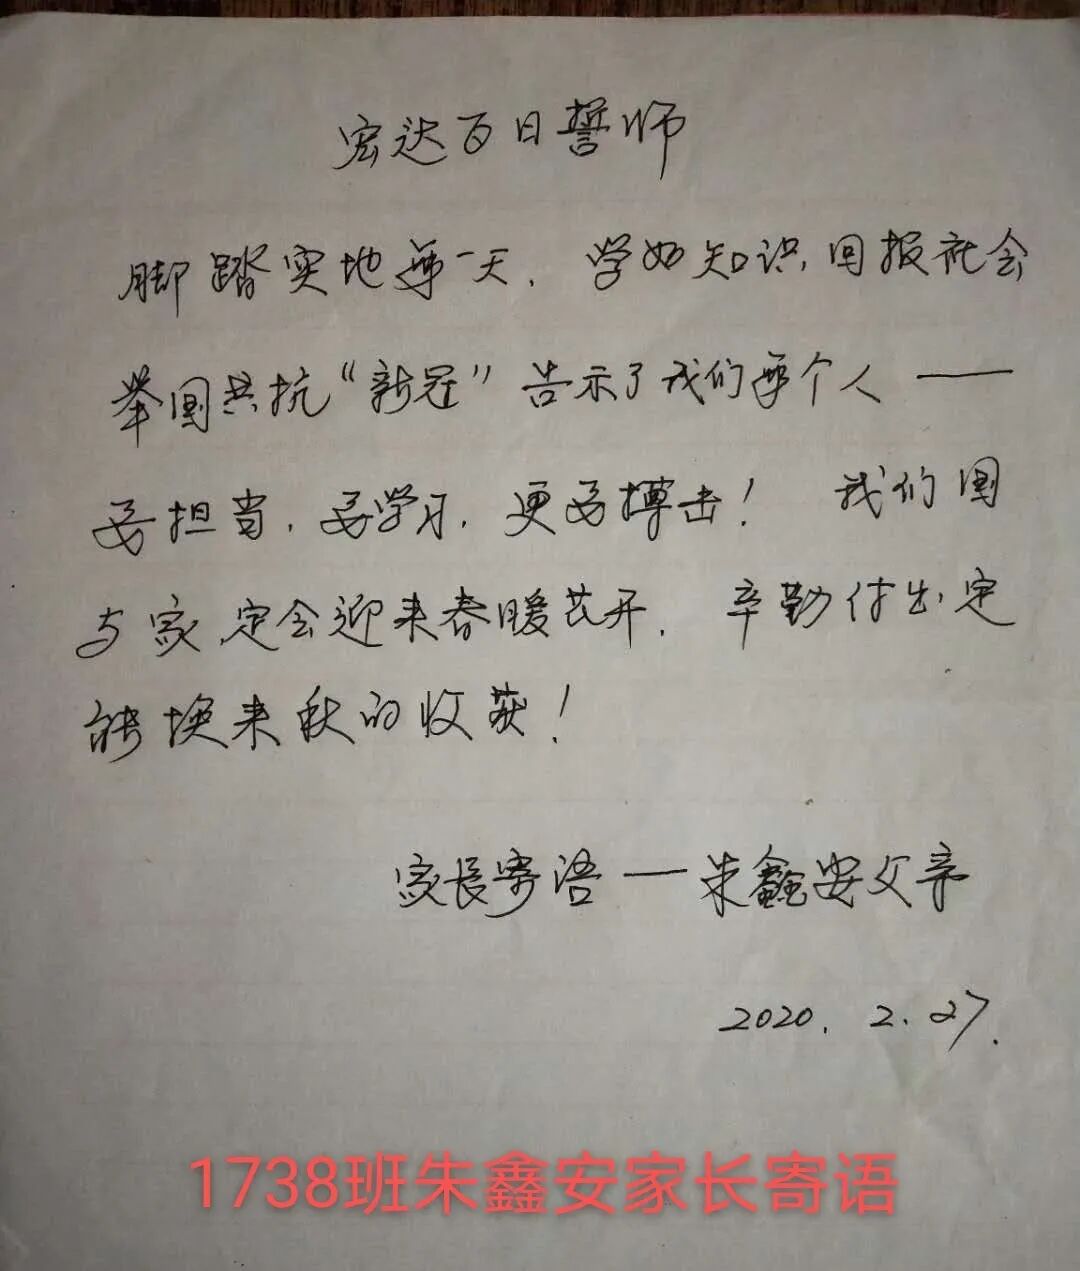 宏达百日誓师
脚踏实地每一天，学好知识，回报社会
举国共抗“新冠”告示了我们每个人——
要担当，要学习，更要搏击！我们国
与家，定会迎来春暖花开，辛勤付出，定
能换来秋的收获！
家长寄语——朱鑫安父亲
2020.2.27.
1738班朱鑫安家长寄语